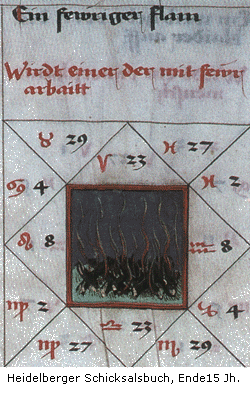 Ein fewriger flam
Wirdt einer der mit fewr
arbaitt
♉ 29 ♈ 23 ♓ 27
♋ 4 ♓ 2
♌ 8 ♒ 8
♍ 2 ♑ 4
♎ 23
♍ 27 ♏ 29
Heidelberger Schicksalsbuch, Ende15 Jh.